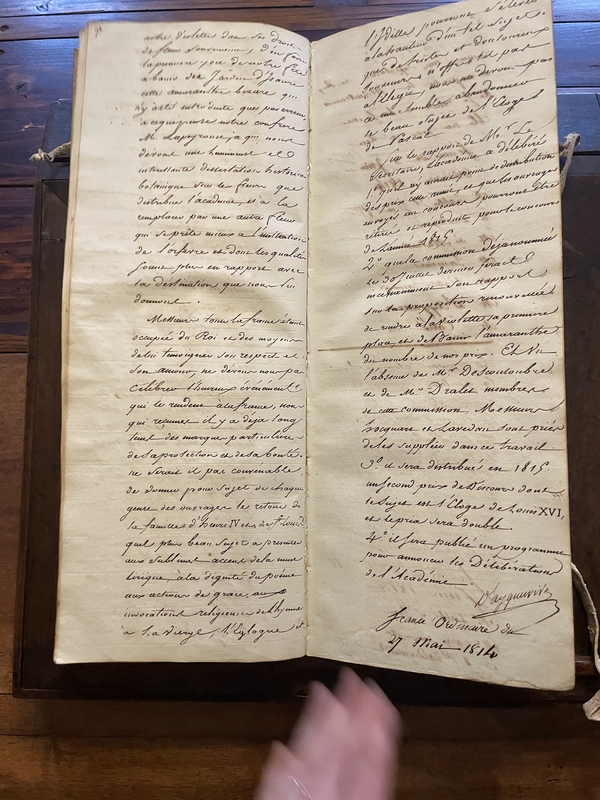 notre Violette dans ses droits
de fleur Souveraine, d'en faire
la première joie de notre fête
a bannir des Jardins d'Isaure
cette amaranthe bizarre qui
n'y a été introduite que par erreur
a ce que pense notre confrère
M. Lapeyrouse, a qui nous
devons une lumineuse et
interessante dissertation historico
botanique sur les fleurs que
distribue l'académie et a la
remplacer par une autre fleur
qui se prête mieux a l'imitation
de l'orfevre et dont les qualités
soient plus en rapport avec
la destination que nous lui
donnons.
Messieurs toute la france étant
occupée du Roi et des moyens
de lui temoigner son respect et
son amour, ne devons nous pas
Célébrer l'heureux événement
qui le rendent a la france, nous
qui reçumes il y a déja long
tems des marques particulieres
de sa protection et de sa bonté.
ne serait il pas convenable
de donner pour sujet de chaque
genre des ouvrages le retour de
la famille d'henri IV et de St Louis
quel plus beau sujet a présenter
aux sublimes accens de la muse
lirique, a la dignité du poëme
aux actions de grace, aux
invocations religieuses de l'hymne
a la vierge, l'Eglogue et
l'Idille pourront s'élever
a la hauteur d'un tel sujet.
que de tristes et douloureux
souvenirs n'offre t'il pas
a l'Elegie, nous ne devons pas
ce me semble abandonner
le beau sujet de l'Eloge
de Pascal
Sur le rapport de Mr. Le
Secretaire, l'academie a délibéré
1° qu'il n'y aurait point de distribution
des prix cette année, et que les ouvrages
envoyés au concours pourront être
retirés et reproduits pour le concours
de l'année 1815
2° que la commission déja nommée
Le 30 Juin dernier ferait
incessamment son rapport
sur la proposition renouvellée
de rendre a la violette sa premiere
place et de Bannir l'amaranthe
du nombre de nos prix. Et Vu
l'absence de Mr. Descouloubre
et de Mr. Dralet membres
de cette commission Messieurs
Jocquart et Lavedan sont priés
de les suppléer dans ce travail
3° il sera distribué en 1815
un second prix de Discours dont
le Sujet est l'Eloge de Louis XVI,
et le prix sera double.
4° il sera publié un programme
pour annoncer les Délibérations
de l'Académie
D'ayguesvives
Séance Ordinaire du
27 Mai 1814